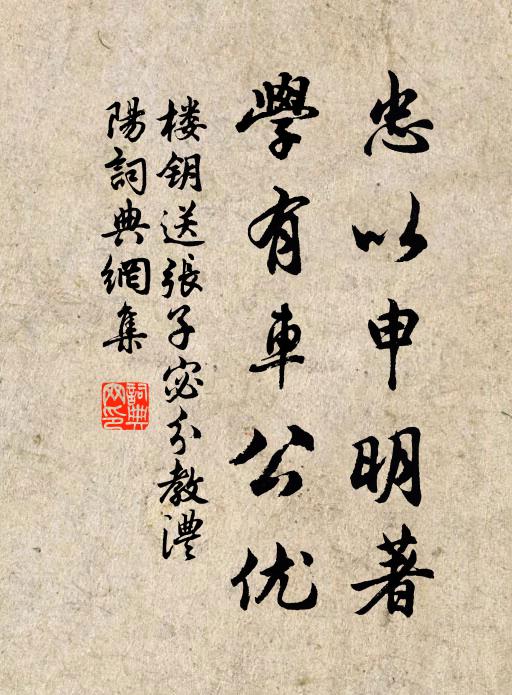 忠以申明著
學有車公优
楼钥送張子宓分教澧
陽詞典網集
詞典網印